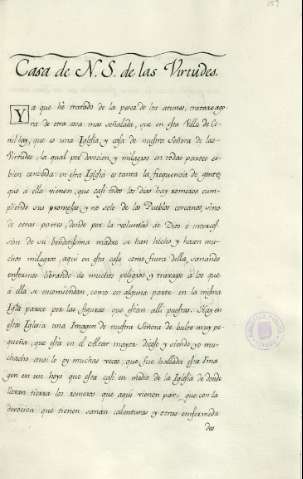 Casa de N. S. de las Virtudes.
Ya que hà tratado de la pesca de los atunes, trataré ago
ra de otra cosa mas señalada, que en esta Villa de Co
nil hay, que es una Iglesia y casa de nuestra Señora de las
Virtudes, la qual por devocion, y milagros en todas partes es
bien conocida: en esta Iglesia es tanta la frequencia de gentes
que à ella vienen, que casi todos los dias hay romeros cum
pliendo sus promesas, y no solo de los Pueblos cercanos, sino
de otras partes, donde por la voluntad de Dios è interce
sion de su bendictisima madre se han hecho y hacen mu
chos milagros, aqui en esta casa como fuera della, sanando
enfermos librando de muchos peligros y trabajos à los que
à ella se encomiendan, como en alguna parte en la misma
Iglesia parece por las figuras que estan alli puestas. Hay en
esta Iglesia una Imagen de nuestra Señora de bulto muy pe
queña, que està en el Altar mayor: dicese y siendo yo mu
chacho ansi lo oy muchas veces, que fue hallada esta Ima
gen en un hoyo que està casi en medio de la Iglesia de donde
llevan tierra los romeros que aqui vienen para que con la
devocion que tienen sanan calenturas y otras enfermeda
des